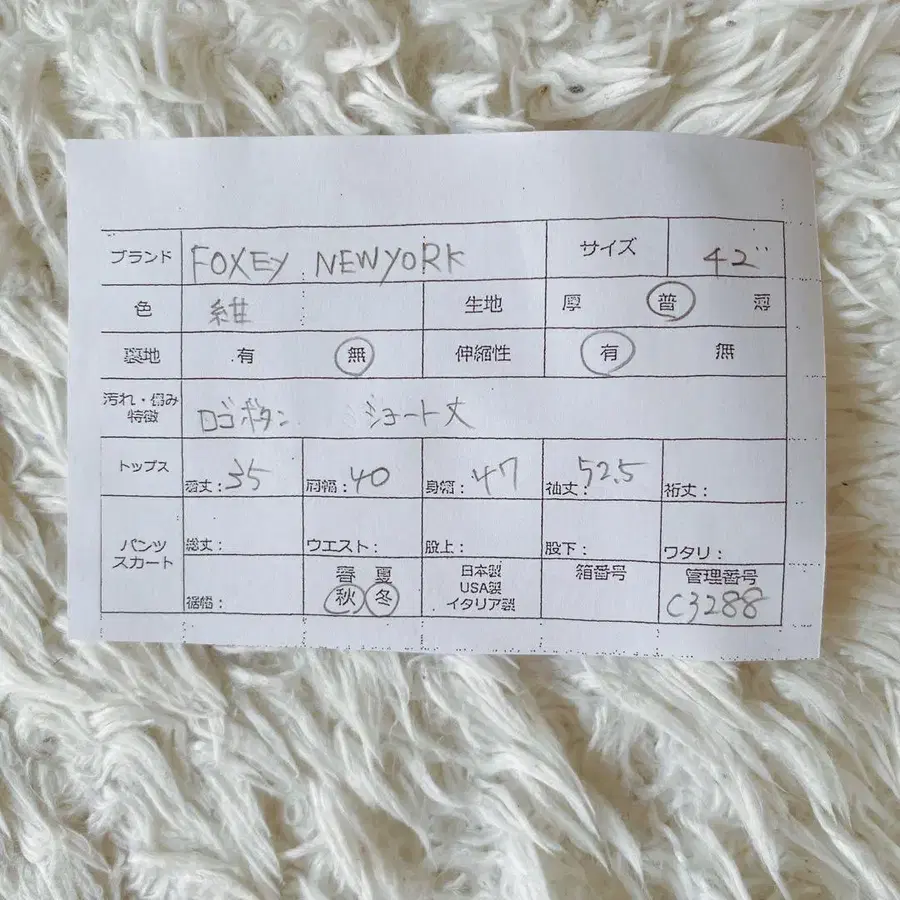 ブランド FOXEY NEWYORK サイズ 42
色 紺 生地 厚 普 薄
裏地 有 無 伸縮性 有 無
汚れ・傷み
特徴 ロゴボタン ショート丈
トップス 着丈:35 肩幅:40 身幅:47 袖丈:52.5 裄丈:
パンツ
スカート 総丈: ウエスト: 股上: 股下: ワタリ:
裾幅: 春 夏
秋 冬
日本製
USA製
イタリア製
箱番号
管理番号
C3288